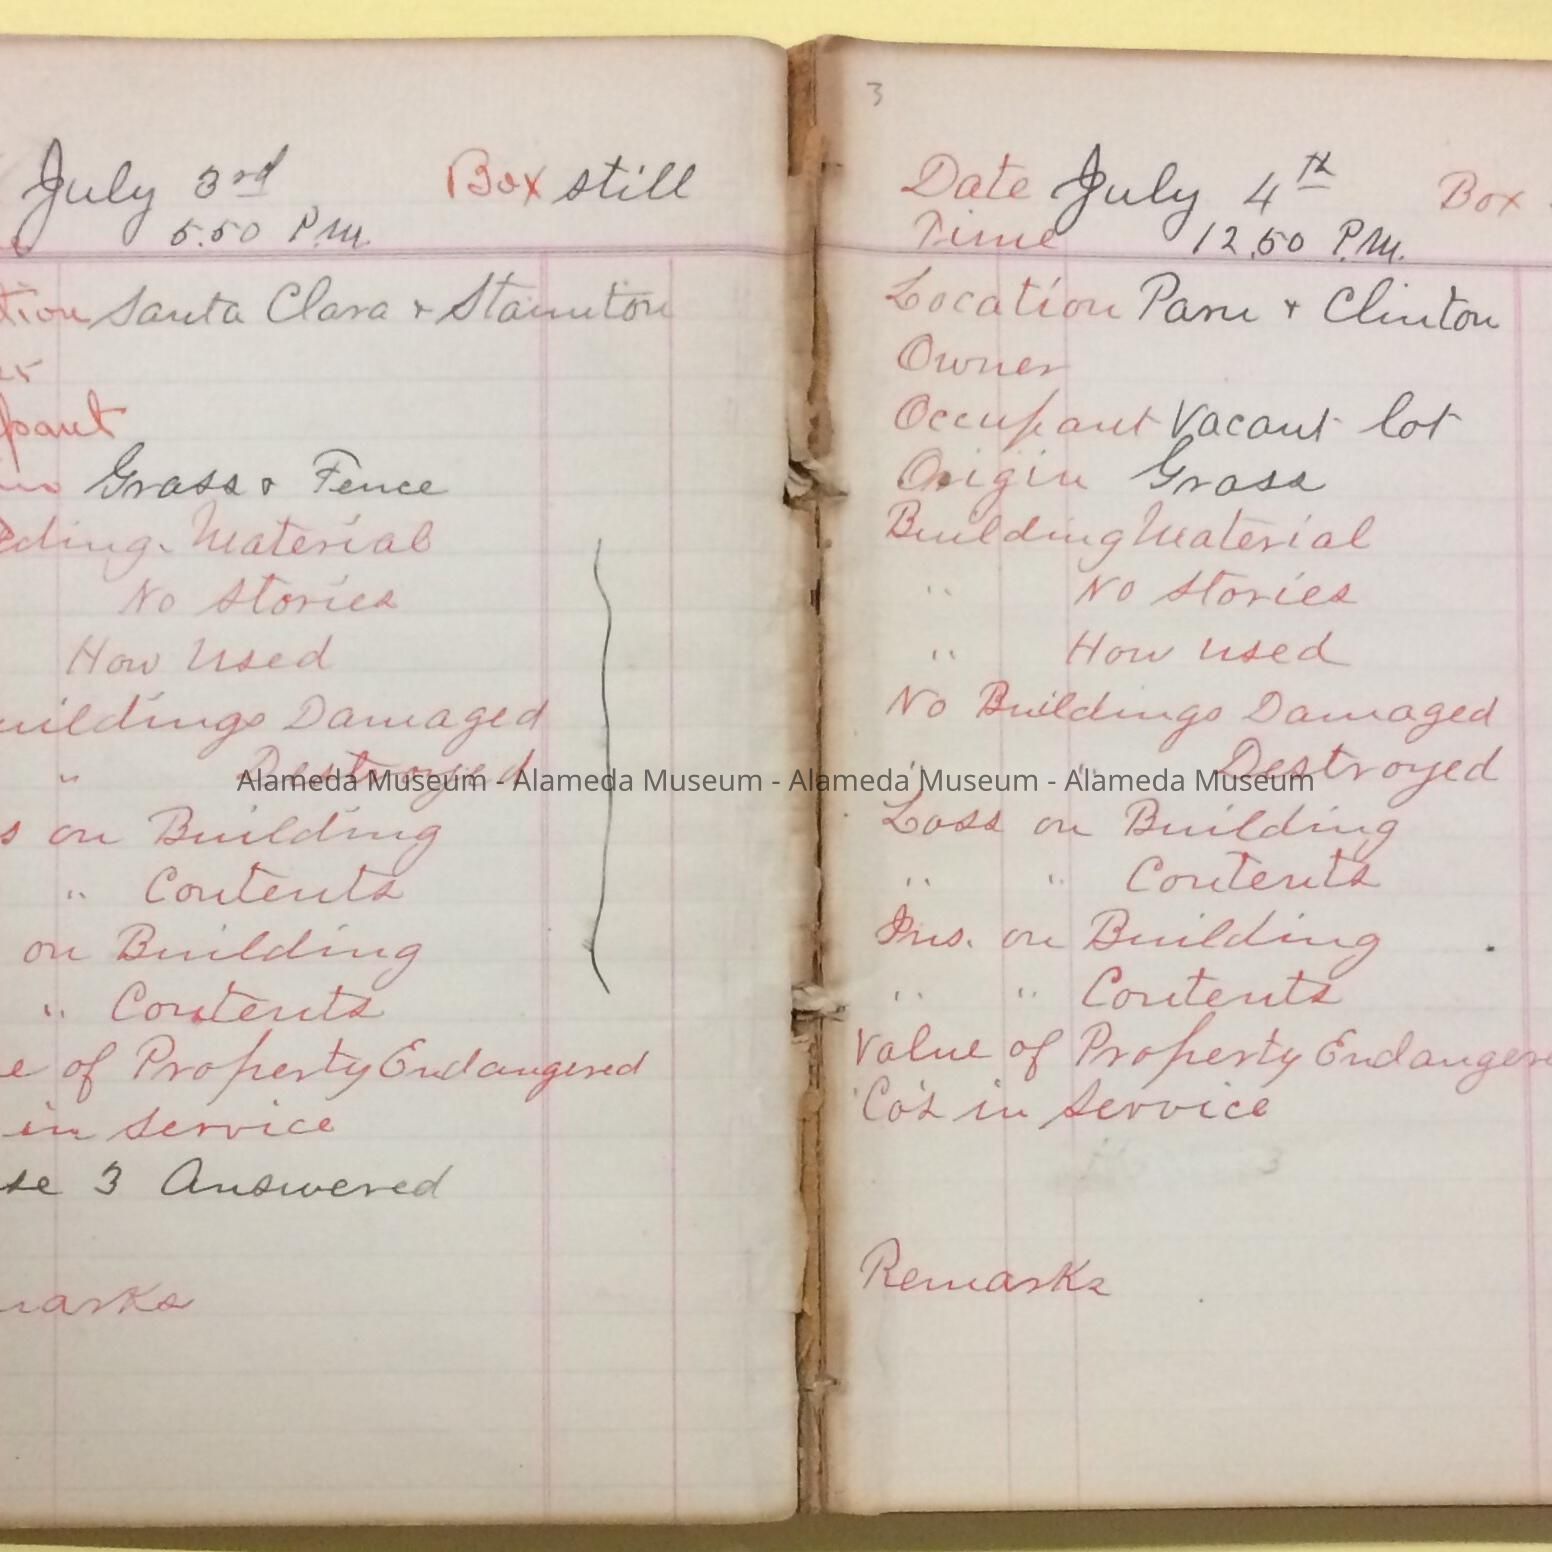 July 3rd Box still
5.50 P.M.
tion Santa Clara & Staunton
pant
Grass & Fence
ding Material
No Stories
How Used
uildings Damaged
" Destroyed
s on Building
" Contents
on Building
" Contents
e of Property Endangered
in Service
se 3 Answered
marks
3
Date July 4th Box
Time 12.50 P.M.
Location Paru & Clinton
Owner
Occupant Vacant lot
Origin Grass
Building Material
" No Stories
" How Used
No Buildings Damaged
" " Destroyed
Loss on Building
" " Contents
Ins. on Building
" " Contents
Value of Property Endangere
Co's in Service
Remarks
Alameda Museum - Alameda Museum - Alameda Museum - Alameda Museum